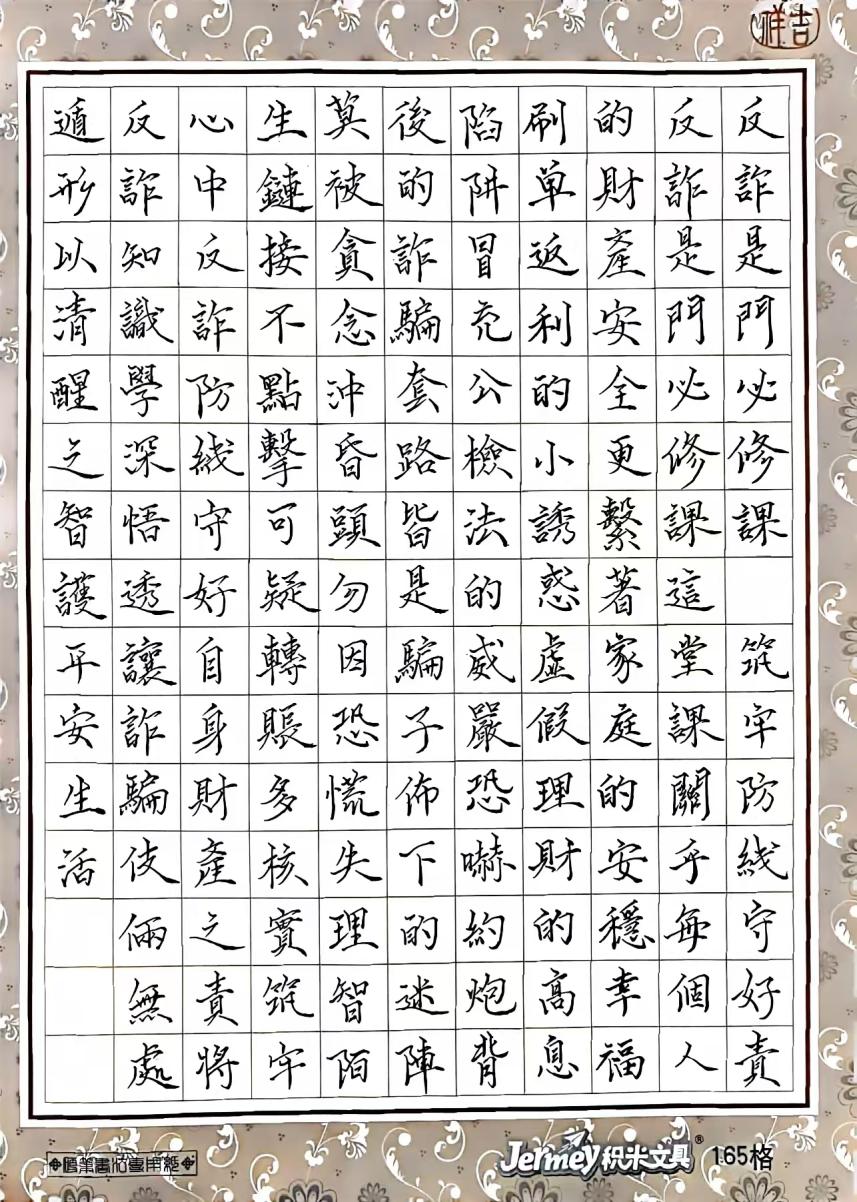 吉祥
反詐是門必修課 筑牢防綫守好責
反詐是門必修課這堂課關乎每個人
的財產安全更繫著家庭的安穩幸福
刷單返利的小誘惑虛假理財的高息
陷阱冒充公檢法的威嚴恐嚇約炮背
後的詐騙套路皆是騙子佈下的迷陣
莫被貪念沖昏頭勿因恐慌失理智陌
生鏈接不點擊可疑轉賬多核實筑牢
心中反詐防綫守好自身財產之責將
反詐知識學深悟透讓詐騙伎倆無處
遁形以清醒之智護平安生活
硬筆書法專用紙
Jermey积米文具® 165格